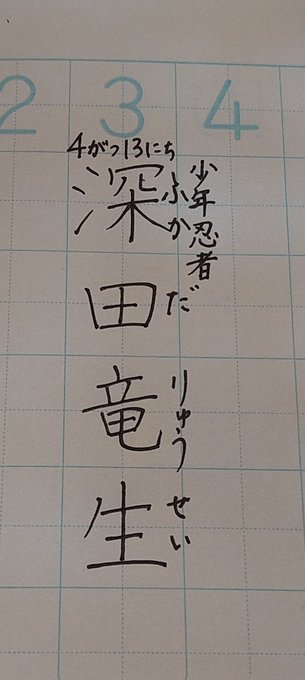 2 3 4
4がつ13にち
少年忍者
深田竜生
ふかだ りゅうせい